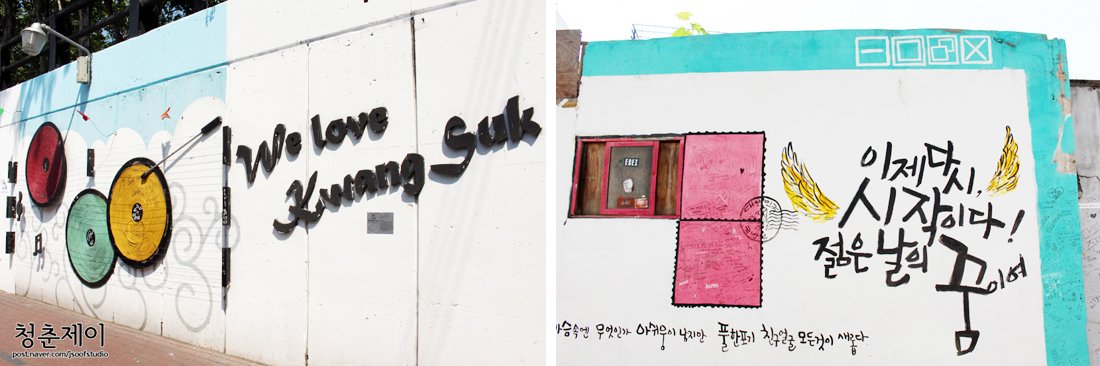 We love
Kwang Suk
청춘제이
post.naver.com/jsoofstudio
이제 다시,
시작이다!
젊은 날의 꿈이여
가슴속엔 무엇인가 아쉬움이 남지만 풀 한포기 친구얼굴 모든것이 새롭다